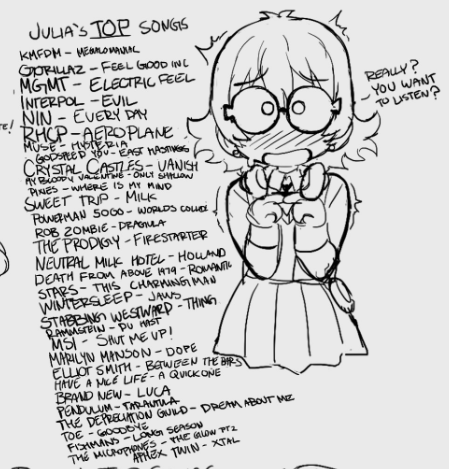 JULIA'S TOP SONGS
KMFDM - MEGALOMANIAC
GORILLAZ - FEEL GOOD INC
MGMT - ELECTRIC FEEL
INTERPOL - EVIL
NIN - EVERY DAY
RHCP - AEROPLANE
MUSE - HYSTERIA
GODSPEED YOU - EAST HASTINGS
CRYSTAL CASTLES - VANISH
MY BLOODY VALENTINE - ONLY SHALLOW
PIXIES - WHERE IS MY MIND
SWEET TRIP - MILK
POWERMAN 5000 - WORLDS COLLIDE
ROB ZOMBIE - DRAGULA
THE PRODIGY - FIRESTARTER
NEUTRAL MILK HOTEL - HOLLAND
DEATH FROM ABOVE 1979 - ROMANTIC
STARS - THIS CHARMING MAN
WINTERSLEEP - JAWS
STABBING WESTWARD - THING
RAMMSTEIN - DU HAST
MSI - SHUT ME UP!
MARILYN MANSON - DOPE
ELLIOT SMITH - BETWEEN THE BARS
HAVE A NICE LIFE - A QUICK ONE
BRAND NEW - LUCA
PENDULUM - TARANTULA
THE DEPRECIATION GUILD - DREAM ABOUT ME
TOE - GOODBYE
FISHMANS - LONG SEASON
THE MICROPHONES - THE GLOW PT2
APHEX TWIN - XTAL
REALLY?
YOU WANT
TO LISTEN?